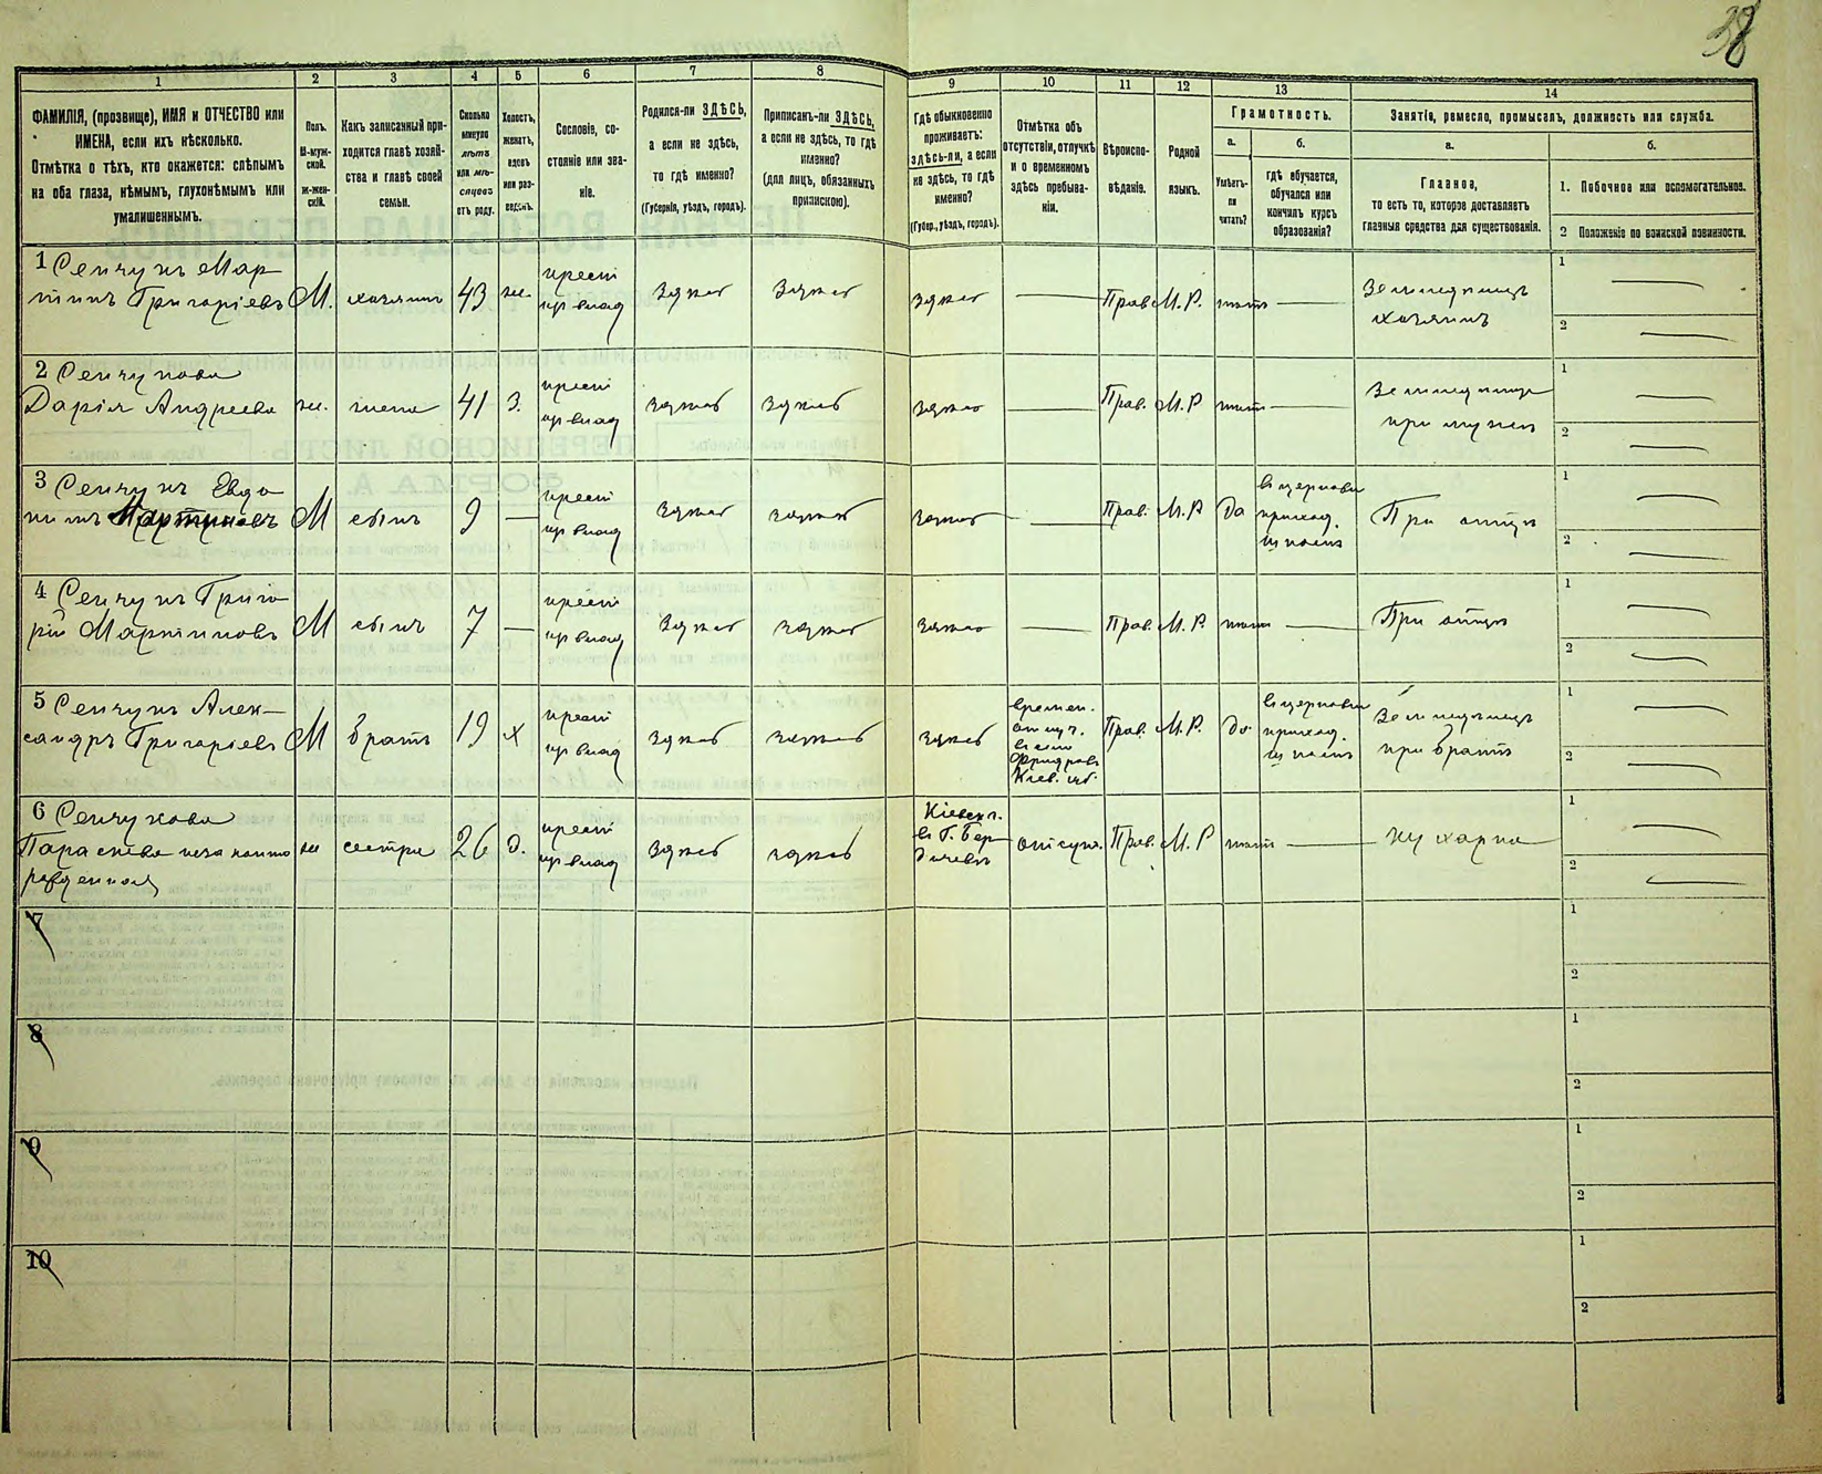 38
1 2 3 4 5 6 7 8 9 10 11 12 13 14
ФАМИЛІЯ, (прозвище), ИМЯ и ОТЧЕСТВО или
ИМЕНА, если ихъ нѣсколько.
Отмѣтка о тѣхъ, кто окажется: слѣпымъ
на оба глаза, нѣмымъ, глухонѣмымъ или
умалишеннымъ.
Полъ.
М-муж-
ской.
Ж-жен-
скій.
Какъ записанный при-
ходится главѣ хозяй-
ства и главѣ своей
семьи.
Сколько
минуло
лѣтъ
или мѣ-
сяцевъ
отъ роду.
Холостъ,
женатъ,
вдовъ
или раз-
веденъ.
Сословіе, со-
стояніе или зва-
ніе.
Родился-ли ЗДѢСЬ,
а если не здѣсь,
то гдѣ именно?
(Губернія, уѣздъ, городъ).
Приписанъ-ли ЗДѢСЬ,
а если не здѣсь, то гдѣ
именно?
(для лицъ, обязанныхъ
припискою).
Гдѣ обыкновенно
проживаетъ:
здѣсь-ли, а если
не здѣсь, то гдѣ
именно?
(Губер., уѣздъ, городъ).
Отмѣтка объ
отсутствіи, отлучкѣ
и о временномъ
здѣсь пребыва-
ніи.
Вѣроиспо-
вѣданіе.
Родной
языкъ.
Грамотность.
а.
Умѣетъ-
ли
читать?
б.
гдѣ обучается,
обучался или
кончилъ курсъ
образованія?
Занятіе, ремесло, промыселъ, должность или служба.
а.
Главное,
то есть то, которое доставляетъ
главныя средства для существованія.
б.
1. Побочное или вспомогательное.
2 Положеніе по воинской повинности.
1 Сенчукъ Мар-
тинъ Григоріевъ М. хозяинъ 43 же. крест Здѣсь Здѣсь Здѣсь — Прав. М.Р. нѣтъ — Земледѣлецъ
хозяинъ 1 — 2 —
2 Сенчукова
Дарія Андреева же. жена 41 З. крест здѣсь здѣсь здѣсь — Прав. М.Р нѣтъ — Земледѣлица
при мужѣ 1 — 2 —
3 Сенчукъ Евдо
кимъ Мартиновъ М сынъ 9 — крест здѣсь здѣсь здѣсь — Прав. М.Р Да въ церковно
приход.
школѣ При отцѣ 1 — 2 —
4 Сенчукъ Григо
рій Мартиновъ М сынъ 7 — крест здѣсь здѣсь здѣсь — Прав. М.Р. нѣтъ — При отцѣ 1 — 2 —
5 Сенчукъ Алек-
сандръ Григоріевъ М братъ 19 х крест здѣсь здѣсь здѣсь времен.
отлуч.
Кіев. губ. Прав. М.Р. Да въ церковно
приход.
школѣ Земледѣлецъ
при братѣ 1 — 2 —
6 Сенчукова
Параскева незаконно
рожденная же сестра 26 д. крест здѣсь здѣсь Кіевск. г.
въ г. Бер-
дичевѣ отсут. Прав. М.Р нѣтъ — кухарка 1 — 2 —
7 1 2
8 1 2
9 1 2
10 1 2